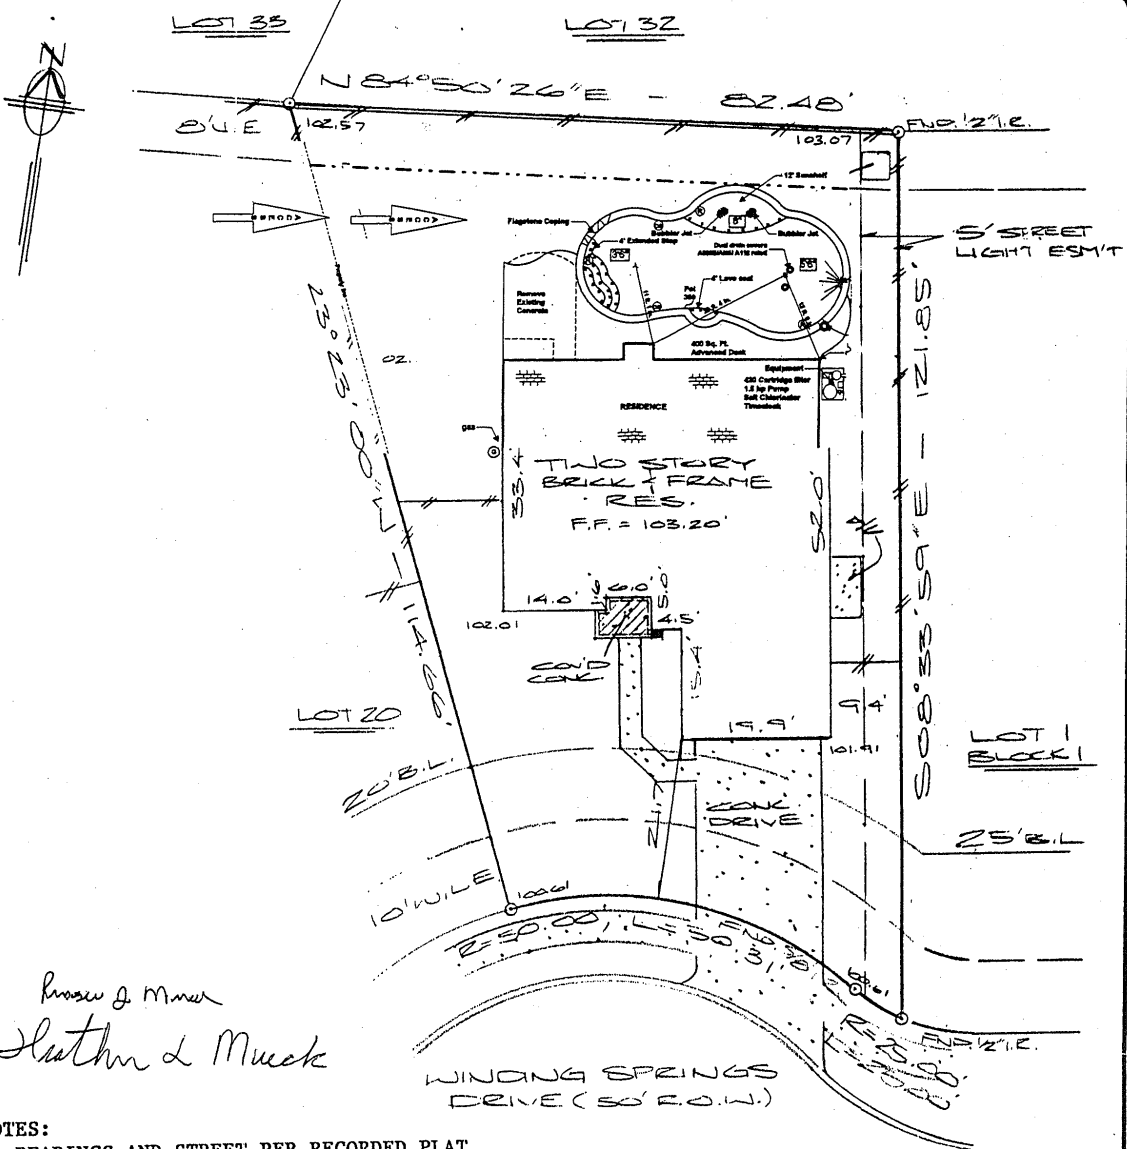 LOT 33
LOT 32
N
N 84°50'26"E - 82.48'
8'U.E
102.57
103.07
FND. 1/2" I.R.
12' Sunshelf
ACCESS
ACCESS
Flagstone Coping
Bubbler Jet
6"
Bubbler Jet
4' Extended Step
3'6"
Dual drain covers
5'6"
5' STREET
LIGHT ESM'T
Remove
Existing
Concrete
4' Love seat
400 Sq. Ft.
Advanced Deck
Equipment
420 Cartridge filter
1.5 hp Pump
Salt Chlorinator
Timeclock
RESIDENCE
02.
gas
23°23'00"W - 114.66'
33.4
TWO STORY
BRICK & FRAME
RES.
F.F. = 103.20'
52.0'
S08°33'59"E - 121.85'
14.0'
1.6'
6.0'
5.0'
4.5'
102.01
COV'D
CONC
15.4'
LOT 20
19.9'
9.4'
101.91
LOT 1
BLOCK 1
20' B.L.
21.7
CONC
DRIVE
25' B.L
10' W.L.E.
100.61
R=50.00', L=50.31'
FND. 5/8
R=25.00'
FND. 1/2" I.R.
WINDING SPRINGS
DRIVE (50' R.O.W.)
OTES:
BEARINGS AND STREET PER RECORDED PLAT